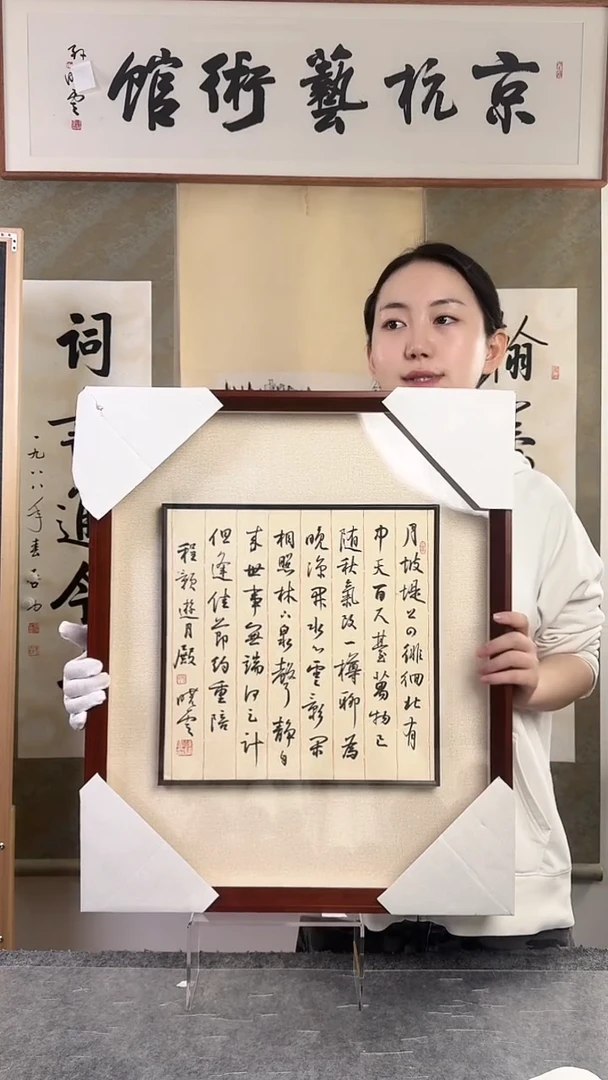 京杭藝術館
孙晓雲
月坡堤上四徘徊北有
中天百尺臺萬物已
随秋氣改一樽聊為
晚涼開水心雲影閑
相照林下泉聲静自
来世事無端何足計
但逢佳節約重陪
程颢遊月陂 曉雲
詞
一九八八年春 启功
翰